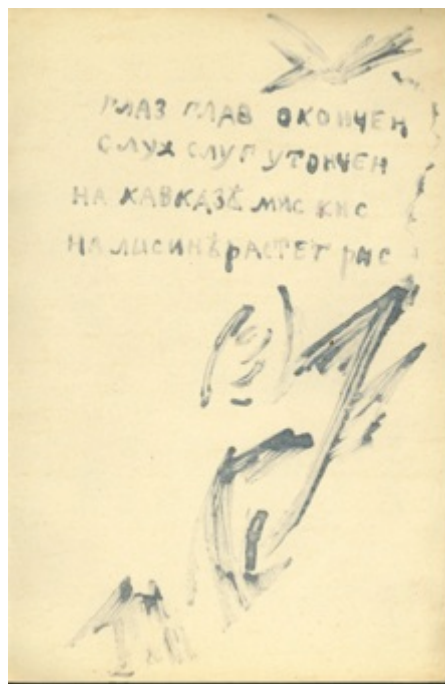 глаз глав окончен
слух слуп утончен
на кавкдзѣ мис кис
на лисинѣ растет рис